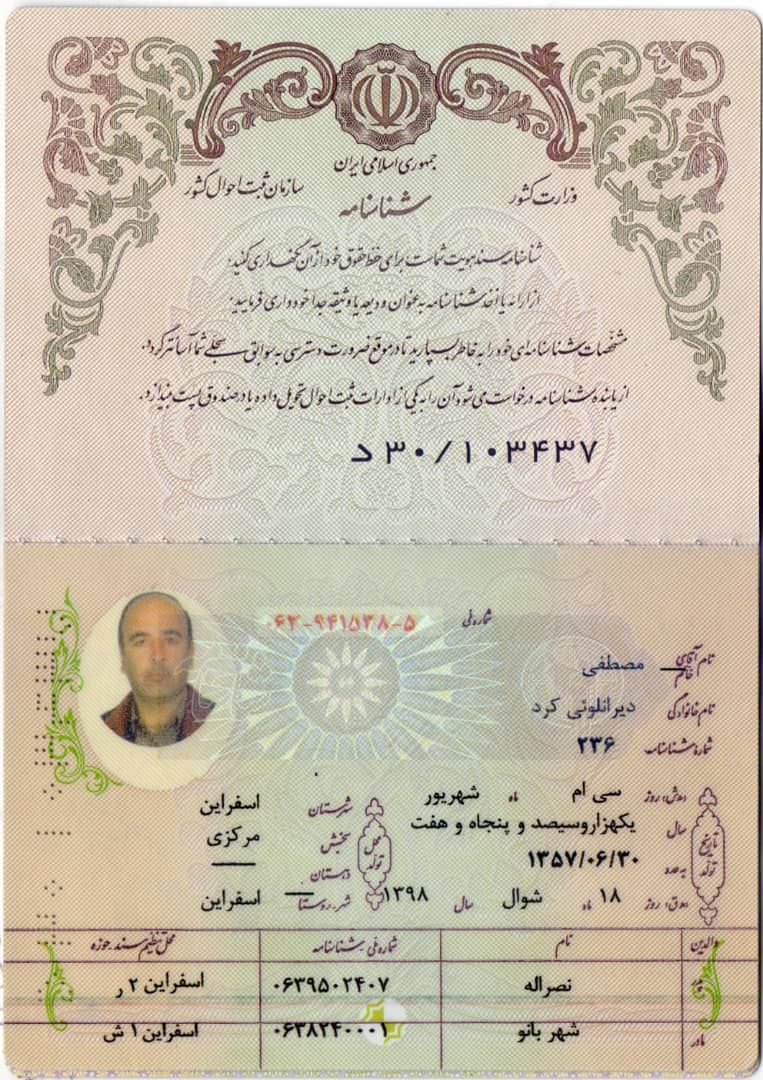 جمهوری اسلامی ایران
وزارت کشور
سازمان ثبت احوال کشور
شناسنامه
شناسنامه سند هویت شماست برای حفظ حقوق خود از آن نگهداری کنید.
از ارائه یا اخذ شناسنامه به عنوان ودیعه یا وثیقه جداً خودداری فرمایید.
مشخصات شناسنامه‌ای خود را به خاطر بسپارید تا در موقع ضرورت دسترسی به سوابق سجلی شما آسانتر گردد.
از یابنده شناسنامه درخواست می شود آن را به یکی از ادارات ثبت احوال تحویل داده یا در صندوق پست بیندازد.
د ۳۰/۱۰۳۴۳۷
شماره ملی ۰۶۳-۹۴۱۵۳۸-۵
نام آقای خانم مصطفی
نام خانوادگی دیرانلوئی کرد
شماره شناسنامه ۲۳۶
تاریخ تولد
(ش) روز سی ام ماه شهریور
سال یکهزار و سیصد و پنجاه و هفت
به عدد ۱۳۵۷/۰۶/۳۰
(ق) روز ۱۸ ماه شوال سال ۱۳۹۸
محل تولد
شهرستان اسفراین
بخش مرکزی
دهستان —
شهر، روستا اسفراین
والدین نام شماره ملی شناسنامه محل تنظیم سند حوزه
پدر نصراله ۰۶۳۹۵۰۲۴۰۷ اسفراین ۲ ر
مادر شهر بانو ۰۶۳۸۲۴۰۰۰۱ اسفراین ۱ ش